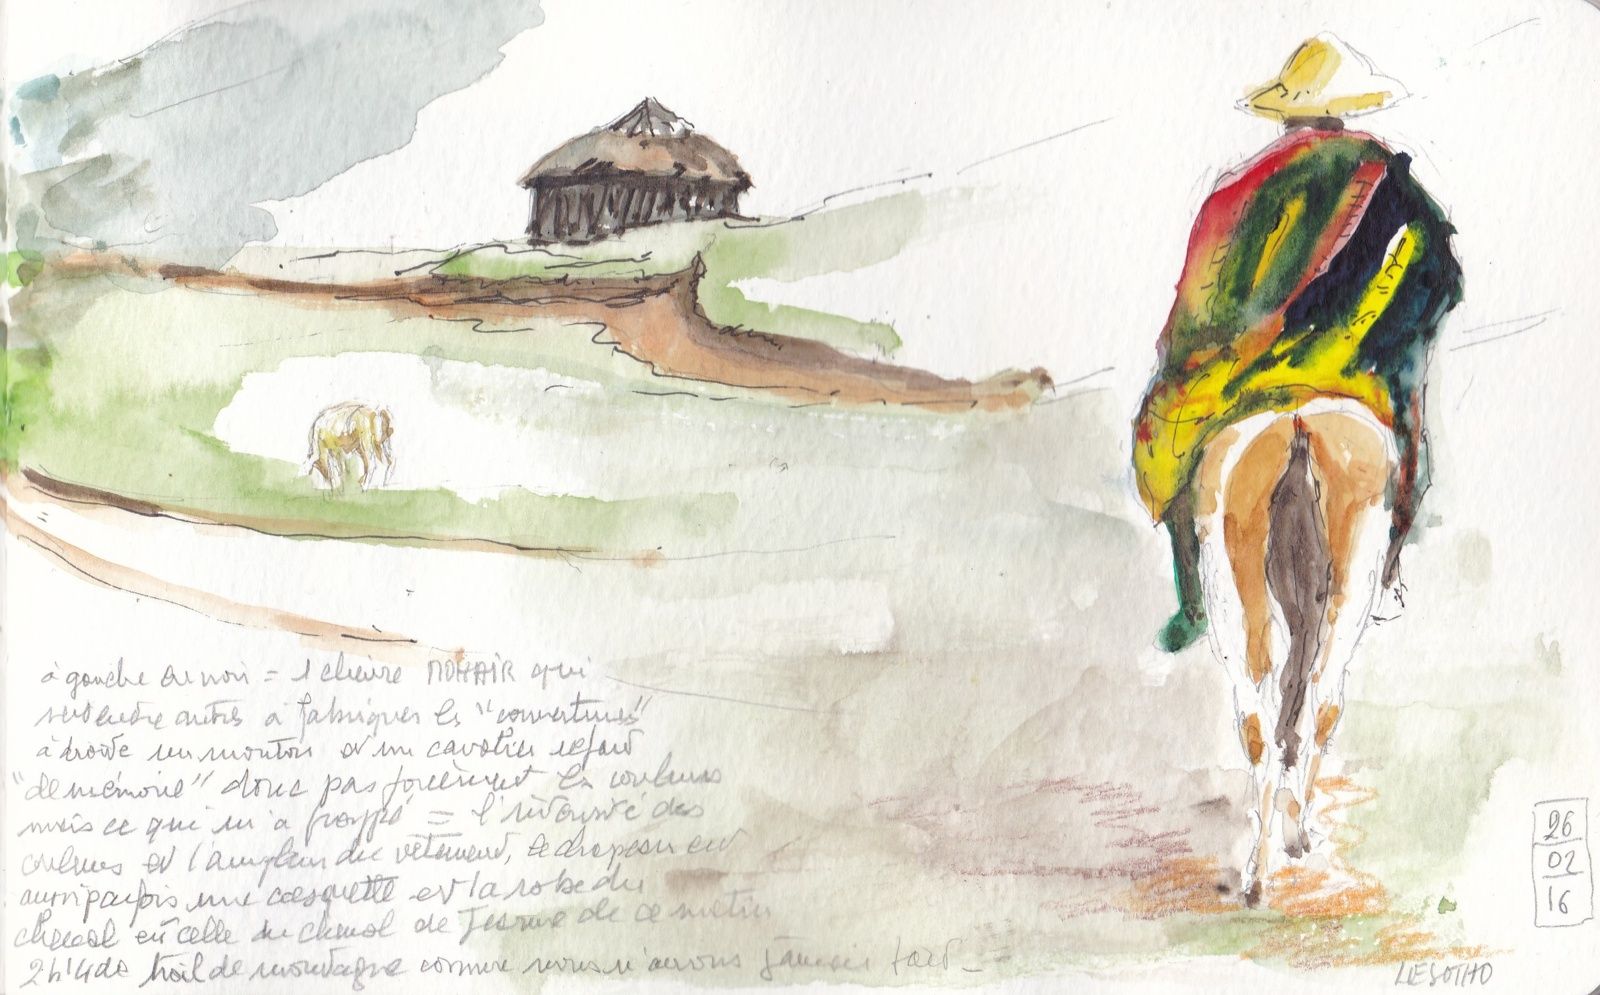 à gauche en noir = 1 chèvre MOHAIR qui
sert entre autres à fabriquer les "couvertures"
à droite un mouton et un cavalier refait
"de mémoire" donc pas forcément les couleurs
mais ce qui m'a frappé = l'intensité des
couleurs et l'ampleur du vêtement, le chapeau est
aussi parfois une casquette et la robe du
cheval est celle du cheval de Jerome de ce matin
2h1/4 de trail de montagne comme nous n'avons jamais fait_
26
02
16
LESOTHO